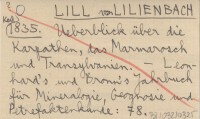 O LILL von LILIENBACH
1835. Ueberblick über die
Karpathen, das Marmarosch
und Transylvanien. – Leon-
hard's und Bronn's Jahrbuch
für Mineralogie, Geognosie und
Petrefaktenkunde: 78.